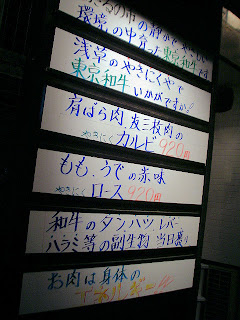 環境の中育った東京和牛
浅草のやきにくやで
東京和牛 いかがですか?
肩ばら肉、友三枚肉の
やきにく カルビ 920円
もも、うでの赤味
やきにく ロース 920円
和牛のタン ハツ レバー
ハラミ等の副生物 当日裏り
お肉は身体の